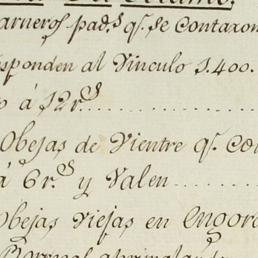 arneros pad.s q.e se contaron
sponden al Vinculo 1.400.
o á 12 r.s
Obejas de Vientre q.e Co
á 6 r.s y Valen
Obejas Viejas en engor